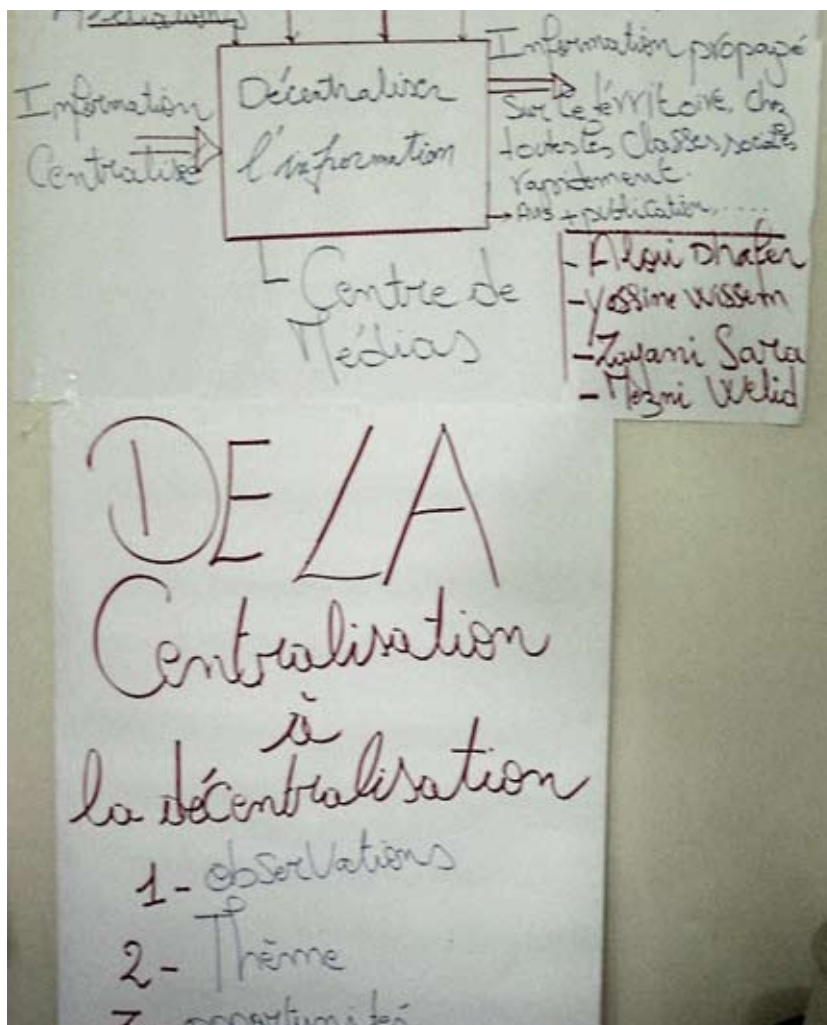 Médiations
Information
Centralisé
Décentraliser
l'information
Information propagé
Sur le térritoire, chez
toutes les Classes sociales
rapidement.
→ Avis + publication, ....
- Centre de
Médias
- Aloui Dhafer
- Yassine Wissem
- Zayani Sara
- Mezni Welid
DE LA
Centralisation
à
la décentralisation
1- observations
2- Thème
3- opportunités